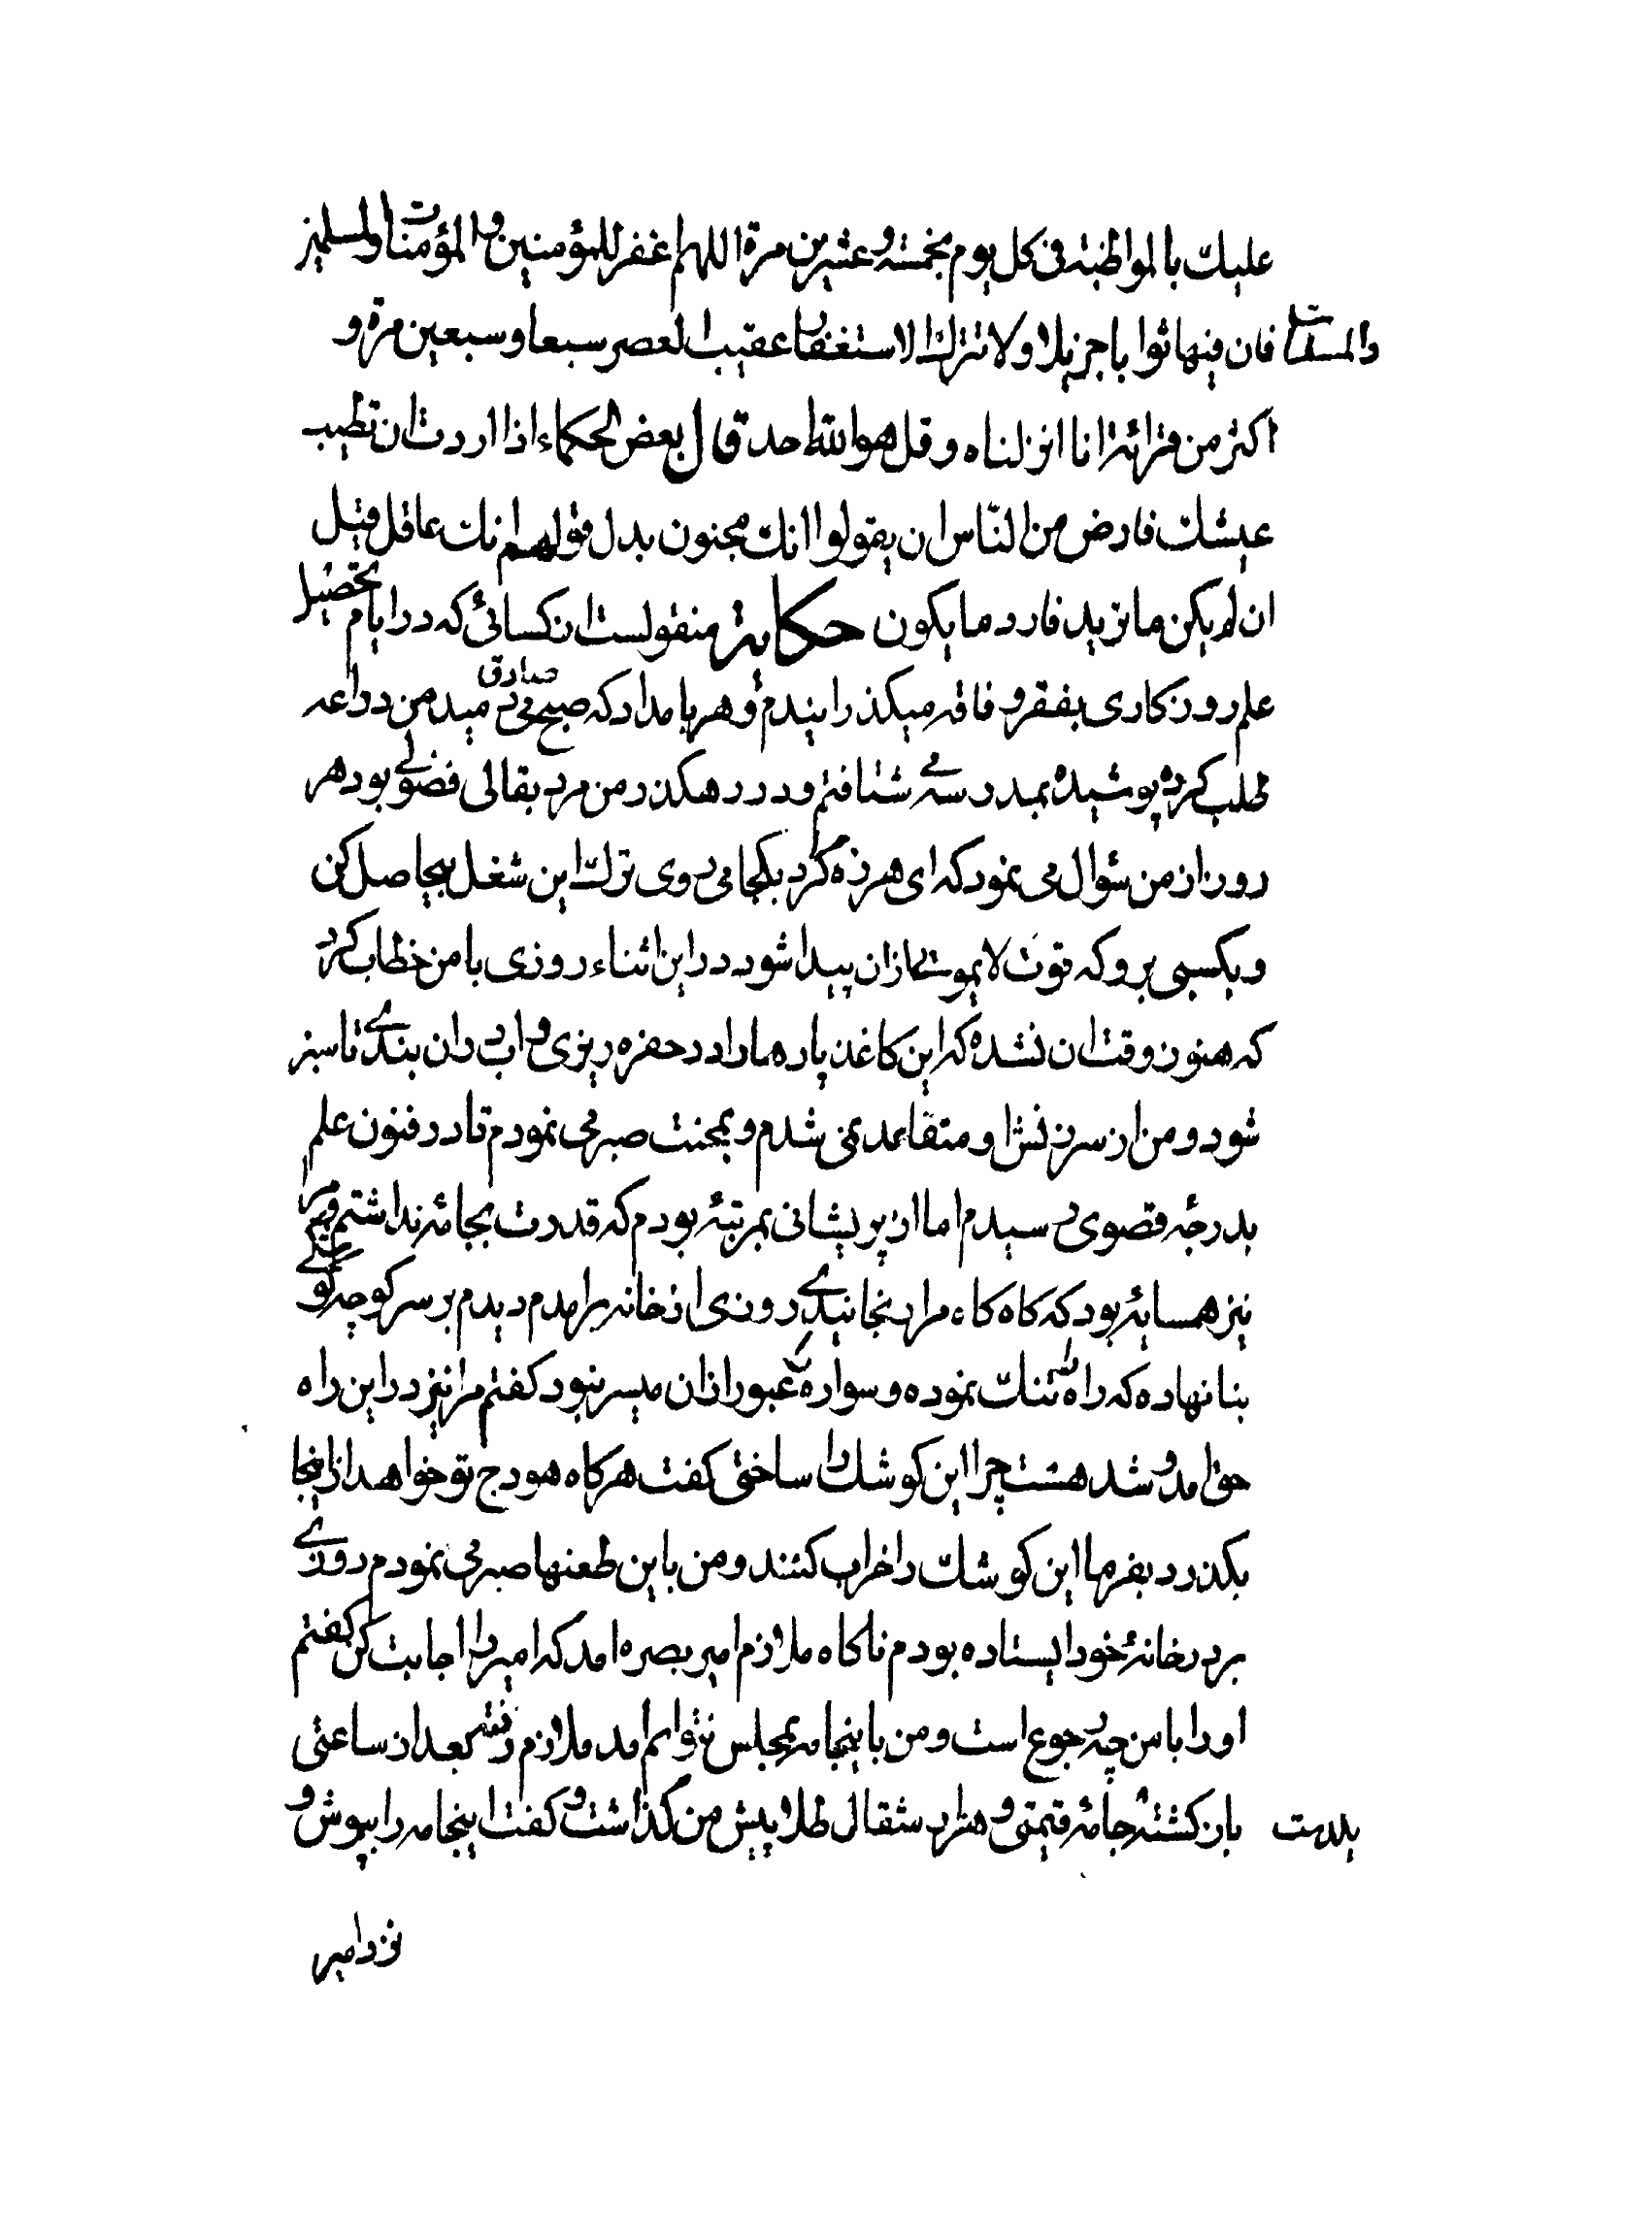 عليك بالمواظبة فى كل يوم بخمسة وعشرين مرة اللهم اغفر للمؤمنين والمؤمنات والمسلمين
والمسلمات فان فيها ثوابا جزيلا ولا تترك الاستغفار عقيب العصر سبعا وسبعين مرة و
اكثر من قرائة انا انزلناه و قل هو الله احد قال بعض الحكماء اذا اردت ان تطيب
عيشك فارض من الناس ان يقولوا انك مجنون بدل قولهم انك عاقل قيل
ان لم يكن ما تريد فارد ما يكون حكاية منقولست از كسائى كه در ايام تحصيل
علم روزكارى بفقر و فاقه ميكذرانيدم و هر بامداد كه صبح صادق مى دميد من دراعه
طلب كرده پوشيده بمدرسه مى شتافتم و در رهكذر من مرد بقالى فضولى بود هر
روز از من سؤال مى نمود كه اى هرزه كرد بكجا مى روى ترك اين شغل بيحاصل كن
و بكسبى برو كه قوت لايموت از ان پيدا شود در اين اثناء روزى با من خطاب كرد
كه هنوز وقت ان نشده كه اين كاغذ پاره ها را در حفره ريزى و اب در ان بندى تا سبز
شود و من از سرزنش او متقاعد نمى شدم و بمحنت صبر مى نمودم تا در فنون علم
بدرجه قصوى رسيدم اما از پريشانى بمرتبۀ بودم كه قدرت بجامه نداشتم و مرا
نيز همسايۀ بود كه كاه كاه مرا رنجانيدى روزى از خانه برامدم ديدم بر سر كوچه كوشكى
بنا نهاده كه راه تنك نموده و سواره عبور از ان ميسر نبود كفتم مرا نيز در اين راه
حق امد و شد هست چرا اين كوشك را ساختى كفت هر كاه هودج تو خواهد از اينجا
بكذرد بفرما اين كوشك را خراب كنند و من باين طعنها صبر مى نمودم روزى
بر در خانۀ خود ايستاده بودم ناكاه ملازم امير بصره امد كه امير را اجابت كن كفتم
او را با من چه رجوع است و من با اينجامه بمجلس نتوانم امد ملازم رفته بعد از ساعتى
بازكشته جامه قيمتى و هزار مثقال طلا پيش من كذاشت و كفت اينجامه را بپوش و
نزد امير